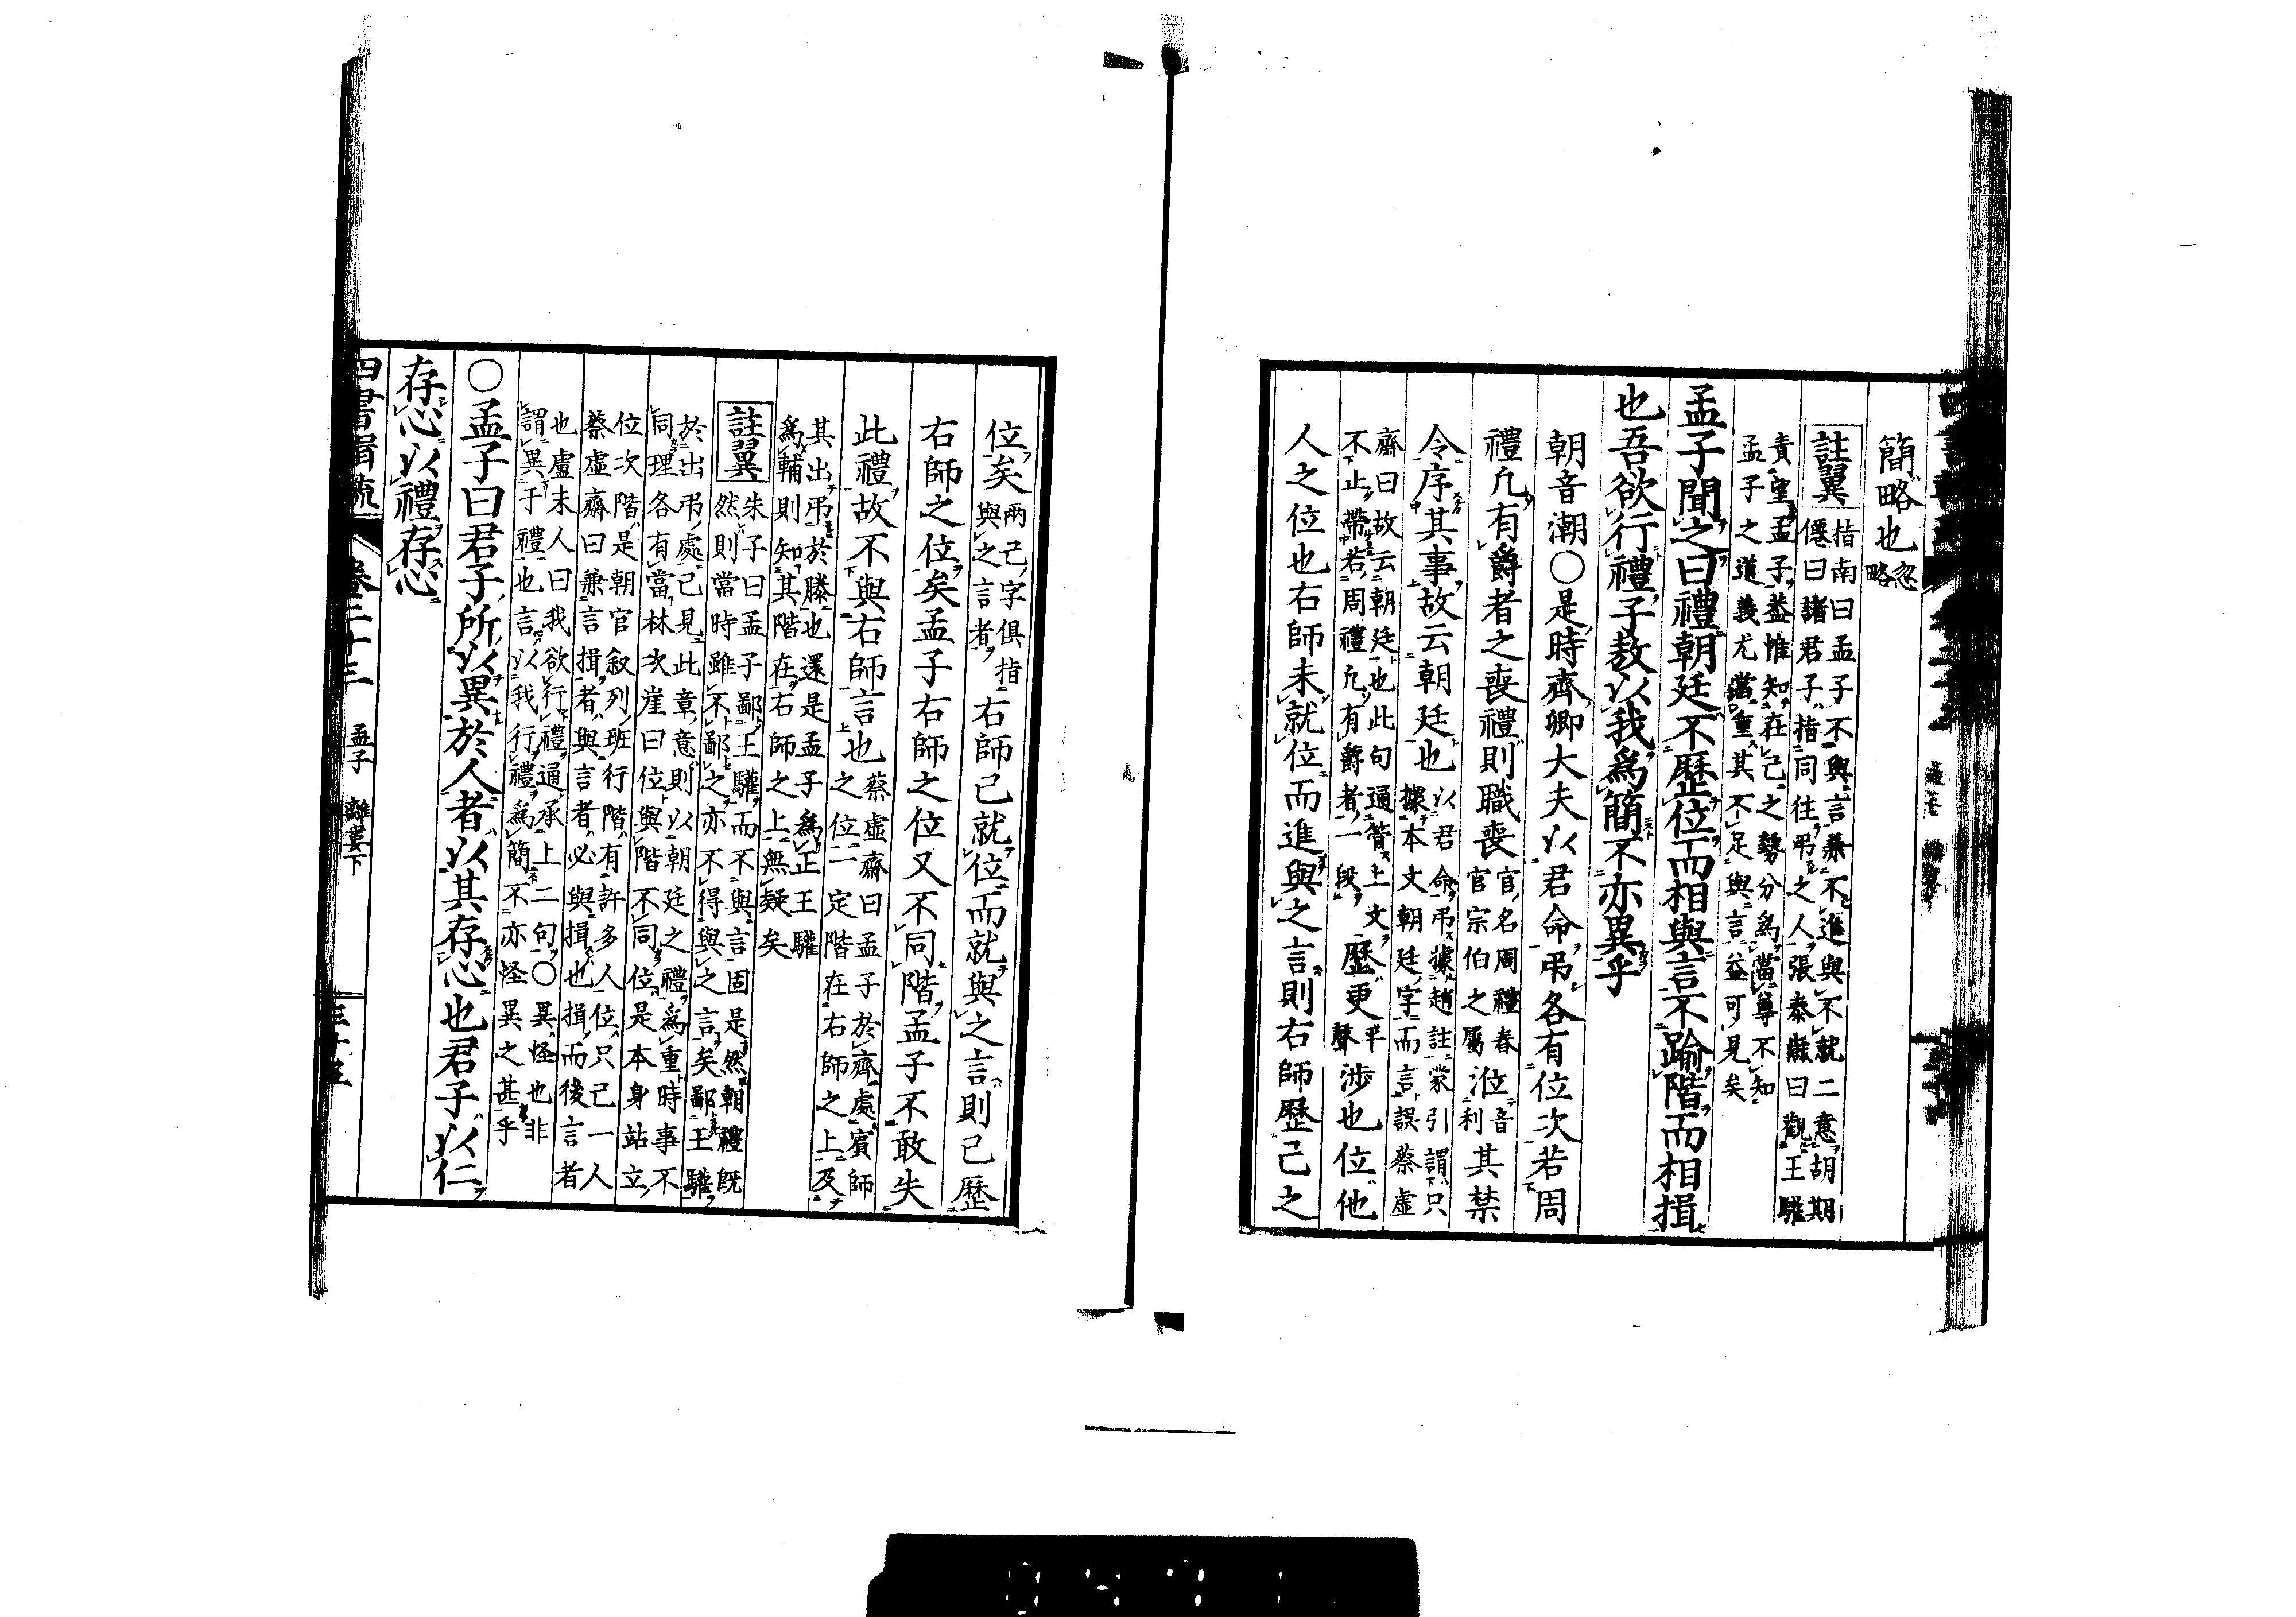 簡略也忽
略
註翼指南曰孟子不與言兼不進與不就二意胡期
僊曰諸君子指同往弔之人張泰巖曰觀王驩
責望孟子葢惟知在己之勢分為當尊不知
孟子之道義尤當重其不足與言益可見矣
孟子聞之曰禮朝廷不歷位而相與言不踰階而相揖
也吾欲行禮子敖以我爲簡不亦異乎
朝音潮〇是時齊卿大夫以君命弔各有位次若周
禮凡有爵者之喪禮則職喪官名周禮春
官宗伯之屬涖音
利其禁
令序其事故云朝廷也以君命弔據趙註蒙引謂只
據本文朝廷字而言誤蔡虛
齋曰故云朝廷也此句通管上文
不止帶若周禮凡有爵者一段歷更平
聲涉也位他
人之位也右師未就位而進與之言則右師歷己之
位矣兩己字俱指
與之言者右師己就位而就與之言則己歷
右師之位矣孟子右師之位又不同階孟子不敢失
此禮故不與右師言也蔡虛齋曰孟子於齊處賓師
之位二定階在右師之上及
其出弔於滕也還是孟子爲正王驩
爲輔則知其階在右師之上無疑矣
註翼朱子曰孟子鄙王驩而不與言固是然朝禮既
然則當時雖不鄙之亦不得與之言矣鄙王驩
於出弔處己見此章意則以朝廷之禮爲重時事不
同理各有當林次崖曰位與階不同位是本身站立
位次階是朝官敘列班行階有許多人位只己一人
蔡虛齋曰兼言揖者與言者必與揖也揖而後言者
也盧未人曰我欲行禮通承上二句〇異怪也非
謂異于禮也言以我行禮爲簡不亦怪異之甚乎
〇孟子曰君子所以異於人者以其存心也君子以仁
存心以禮存心
四書輯疏 卷二十三 孟子 離婁下 三十五